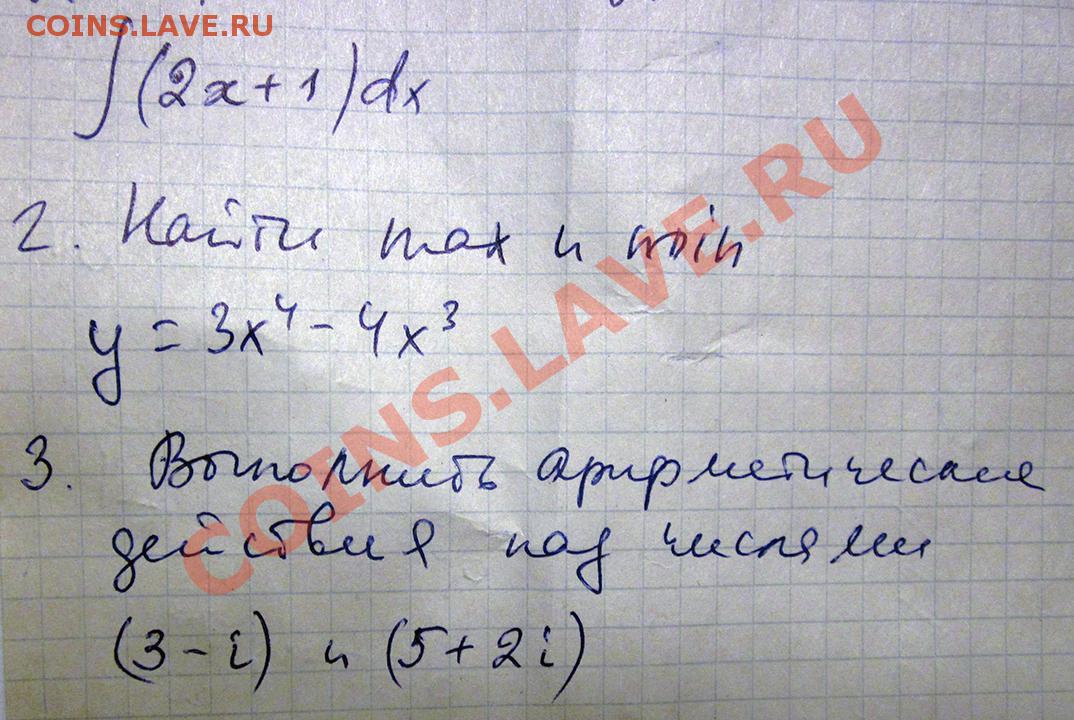 COINS.LAVE.RU
∫(2x+1)dx
2. Найти max и min
y = 3x⁴ - 4x³
3. Выполнить арифметические
действия над числами
(3-i) и (5+2i)
COINS.LAVE.RU